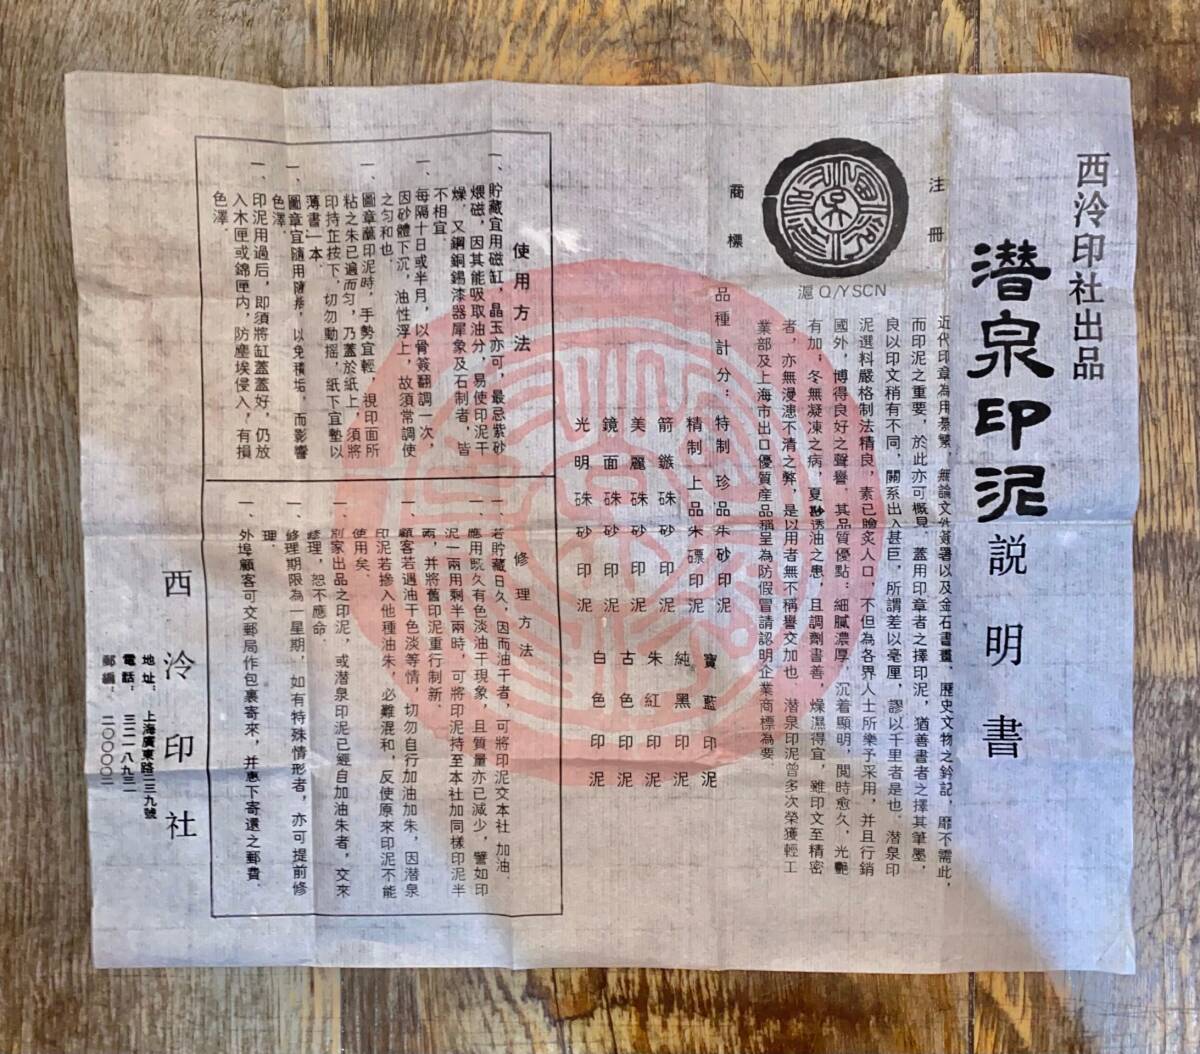 西泠印社出品
潜泉印泥説明書
注冊
商標
滬Q/YSCN
近代印章為用綦繁，無論文件簽署以及金石書畫，歷史文物之鈐記，靡不需此，
而印泥之重要，於此亦可概見，蓋用印章者之擇印泥，猶善書者之擇其筆墨，
良以印文稍有不同，關系出入甚巨，所謂差以毫厘，謬以千里者是也。潜泉印
泥選料嚴格制法精良，素已膾炙人口，不但為各界人士所樂予采用，并且行銷
國外，博得良好之聲譽。其品質優點：細膩濃厚，沉着顯明，閲時愈久，光艷
有加；冬無凝凍之病，夏尠透油之患，且調劑書善，燥濕得宜，雖印文至精密
者，亦無漫漶不清之弊，是以用者無不稱譽交加也。潜泉印泥曾多次榮獲輕工
業部及上海市出口優質産品稱呈為防假冒請認明企業商標為要
品種計分：
特制珍品朱砂印泥
精制上品朱磦印泥
箭鏃硃砂印泥
美麗硃砂印泥
鏡面硃砂印泥
光明硃砂印泥
寶藍印泥
純黑印泥
朱紅印泥
古色印泥
白色印泥
使用方法
一、貯藏宜用磁缸，晶玉亦可，最忌紫砂
煨磁，因其能吸取油分，易使印泥干
燥。又鋼銅錫漆器犀象及石制者，皆
不相宜。
一、每隔十日或半月，以骨簽翻調一次，
因砂體下沉，油性浮上，故須常調使
之匀和也。
一、圖章蘸印泥時，手勢宜輕，視印面所
粘之朱已遍而匀，乃蓋於紙上，須將
印持正按下，切勿動摇，紙下宜墊以
薄書一本。
一、圖章宜隨用隨揩，以免積垢，而影響
色澤。
一、印泥用過后，即須將缸蓋蓋好，仍放
入木匣或錦匣内，防塵埃侵入，有損
色澤。
修理方法
一、若貯藏日久，因而油干者，可將印泥交本社加油。
應用既久有色淡油干現象，且質量亦已減少，譬如印
泥一兩用剩半兩時，可將印泥持至本社加同樣印泥半
兩，并將舊印泥重行制新。
一、顧客若遇油干色淡等情，切勿自行加油加朱，因潜泉
印泥若摻入他種油朱，必難混和，反使原來印泥不能
使用矣。
一、別家出品之印泥，或潜泉印泥已經自加油朱者，交來
修理，恕不應命。
一、修理期限為一星期，如有特殊情形者，亦可提前修
理。
外埠顧客可交郵局作包裹寄來，并惠下寄還之郵費。
西泠印社
地址：上海廣東路二三九號
電話：三二一八九三一
郵編：二〇〇〇〇二